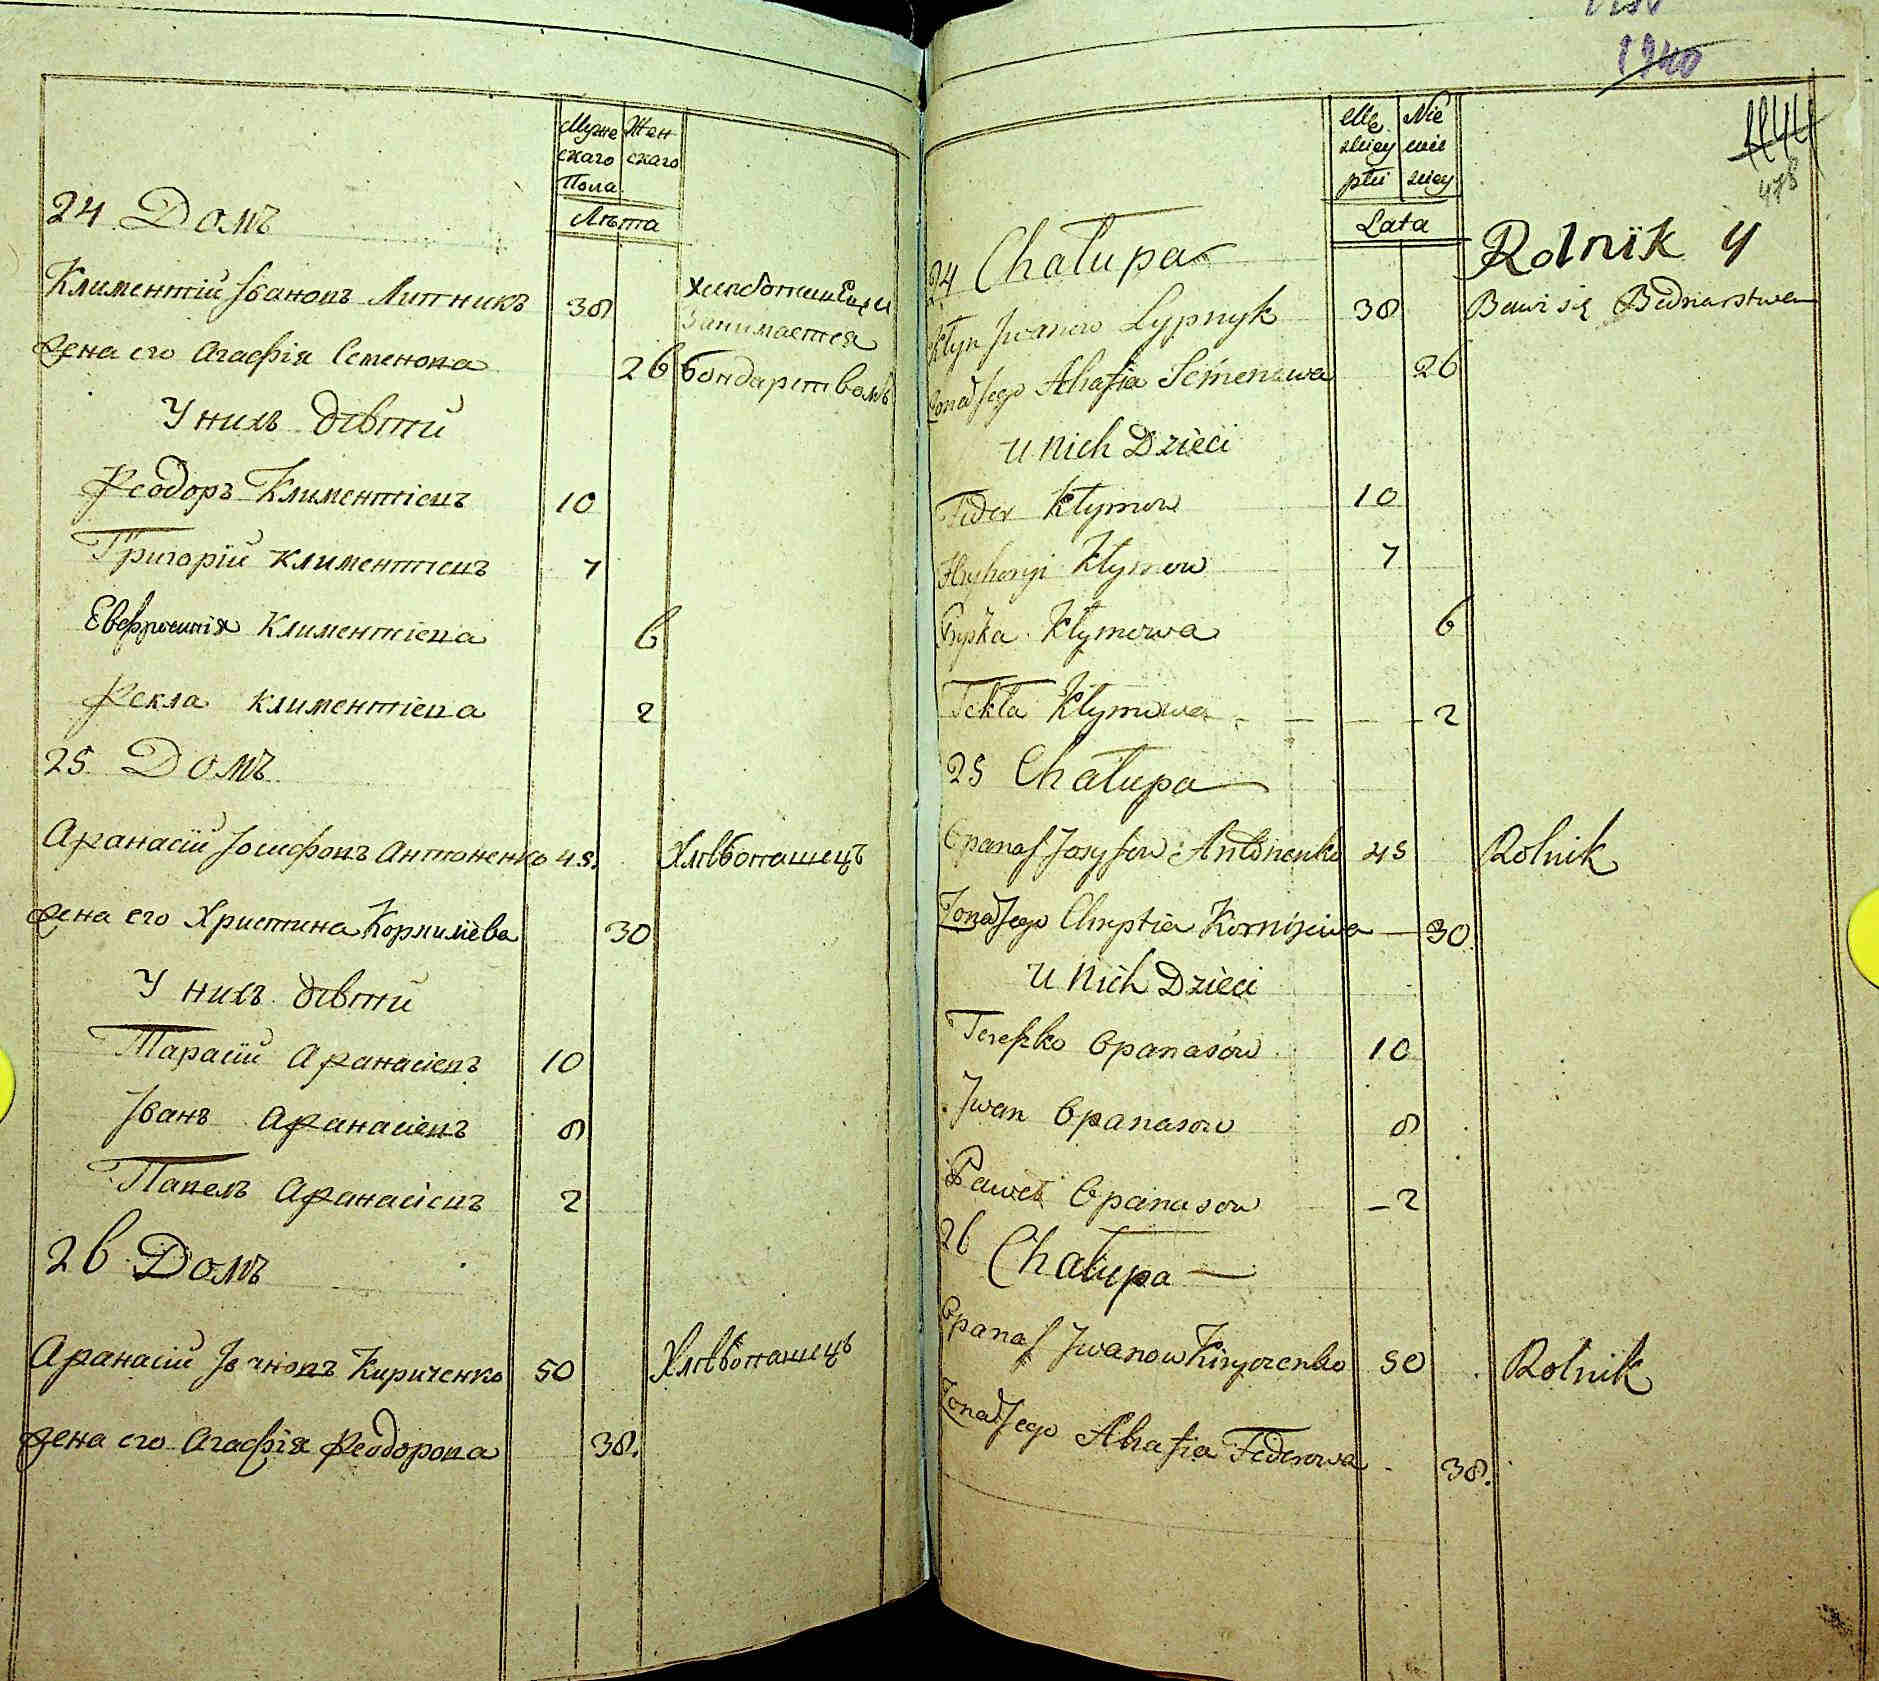 Муже Жен
скаго скаго
Пола
Лѣта
24 Домъ
Климентій Іванопъ Липникъ 38 хлѣбопашецъ и
занимается
жена его Агафія Семенопа 26 бондарствомъ
У нихъ дѣти
Феодоръ Климентіепъ 10
Григорій Климентіепъ 7
Евфросинія Климентіепа 6
Фекла Климентіепа 2
25 Домъ
Афанасій Іосифопъ Антоненко 45. Хлѣбопашецъ
жена его Христина Корнилиева 30
У нихъ дѣти
Тарасій Афанасіепъ 10
Іванъ Афанасіепъ 8
Папелъ Афанасіепъ 2
26 Домъ
Афанасій Іванопъ Кириченко 50 Хлѣбопашецъ
жена его Агафія Феодоропа 38.
1940
478
Lata
24 Chałupa Rolnik y
Kłym Jwanow Lypnyk 38 Bawi się Bednarstwem
Żona Jego Ahafia Semenowa 26
u nich Dzieci
Fedor Kłymow 10
Hryhoryi Kłymow 7
Pryśka Kłymowa 6
Tekla Kłymowa - - - - 2
25 Chałupa
Opanas Josyfow Antonenko 45 Rolnik
Żona Jego Chryptia Korniiewa - 30
u Nich Dzieci
Tereszko Opanasow 10
Jwan Opanasow 8
Paweł Opanasow - 2
26 Chałupa -
Opanas Jwanow Kiryczenko 50 Rolnik
Żona Jego Ahafia Fedorowa 38.